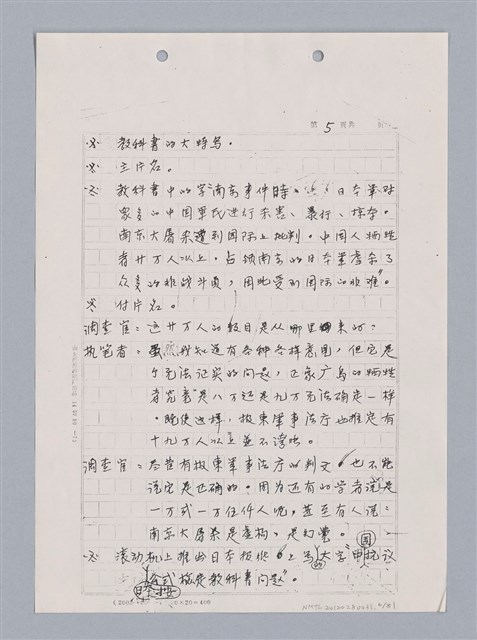 第 5 頁
※ 教科書的大特写。
※ 主片名。
※ 教科書中的字"南京事件時。 日本軍对
眾多的中国軍民进行 暴行、掠夺。
南京大屠杀遭到国际上批判。中国人牺牲
者廿万人以上。占领南京的日本軍虐杀了
众多的非战斗员,因此受到国际的非难"。
※ 付片名。
調查官:这廿万人的数目是从哪里来的?
执笔者:虽然我知道有各种各样意图,但它是
个无法证实的问题,正象广岛的牺牲
者究竟是八万还是九万无法确定一样
。既使这样,极東軍事法庁也推定有
十九万人以上並不清楚。
調查官:尽管有极東軍事法庁的判文,也不能
说它是正确的。因为还有的学者说是
一万或一万任何人呢,甚至有人说:
南京大屠杀是虚构,是幻觉。
※ 滚动机上推出日本报纸上写的大字"中国抗议
核是教科書问题"。
×20=400